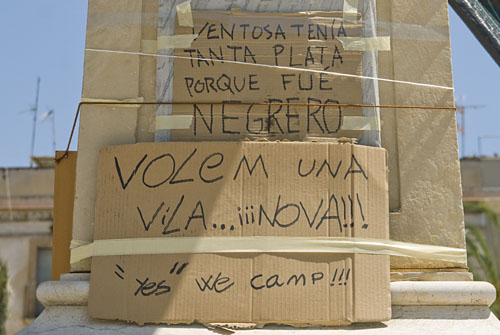 VENTOSA TENÍA
TANTA PLATA
PORQUE FUÉ
NEGRERO
VOLEM UNA
VILA...¡¡¡NOVA!!!
"Yes" we camp!!!